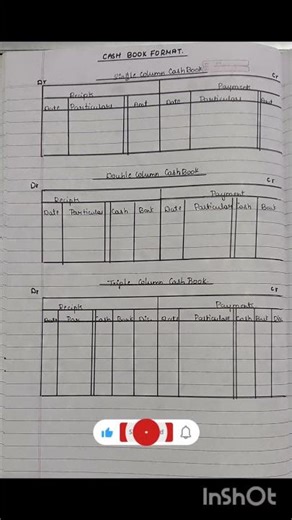 CASH BOOK FORMAT.
Single Column Cash Book
Dr Cr
Recipts Payments
Date Particulars Amt Date Particulars Amt
Double Column Cash Book
Dr Cr
Recipts Payment
Date Particulars Cash Bank Date Particulars Cash Bank
Triple Column Cash Book
Dr Cr
Recipts Payments
Date Par Cash Bank Dis. Date Particulars Cash Dis
InShOt